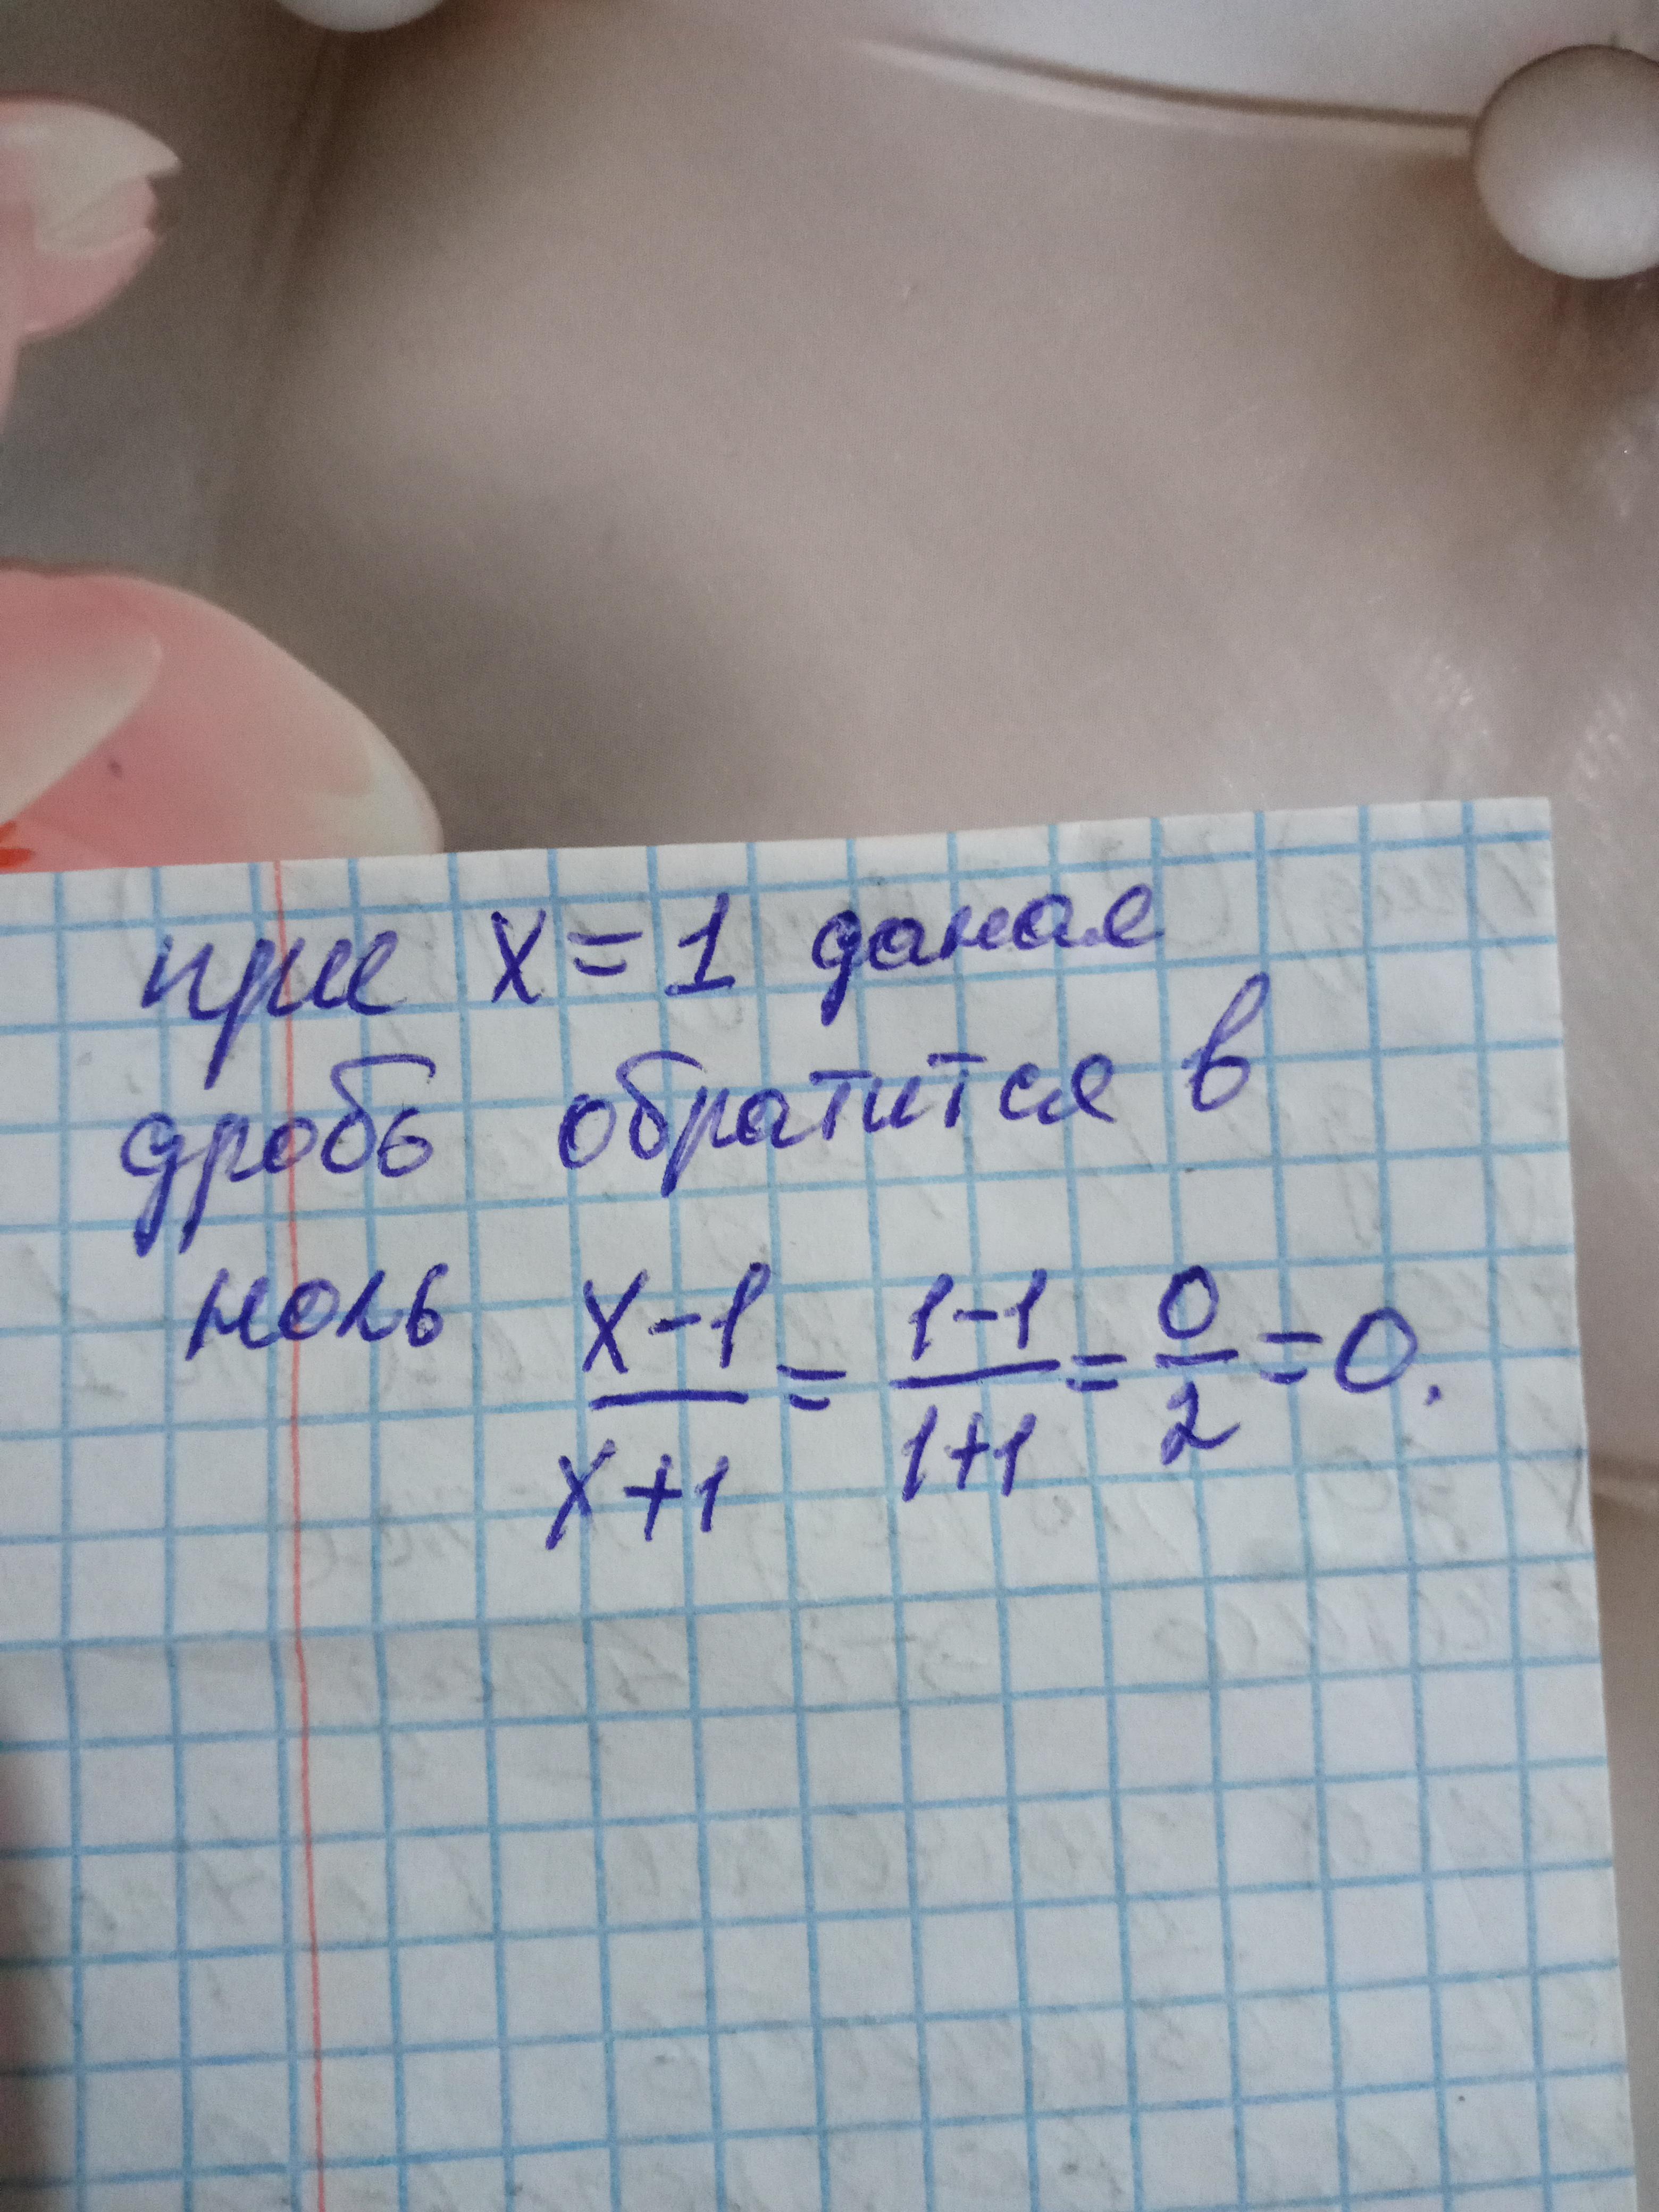 при x = 1 даная
дробь обратится в
ноль x-1/x+1 = 1-1/1+1 = 0/2 = 0.